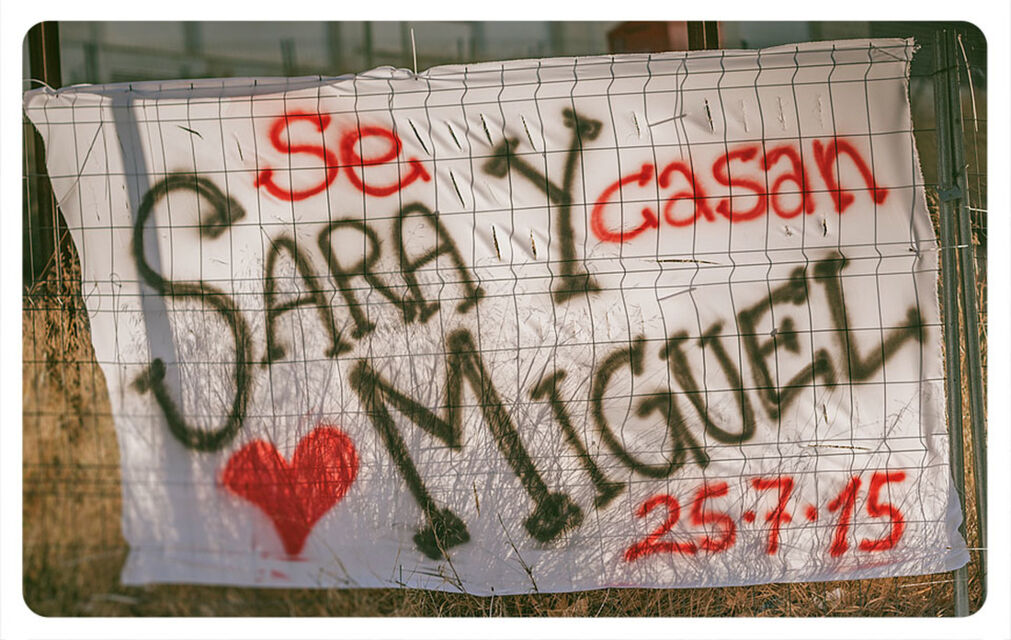 Se
SARA Y casan
MIGUEL
25-7-15